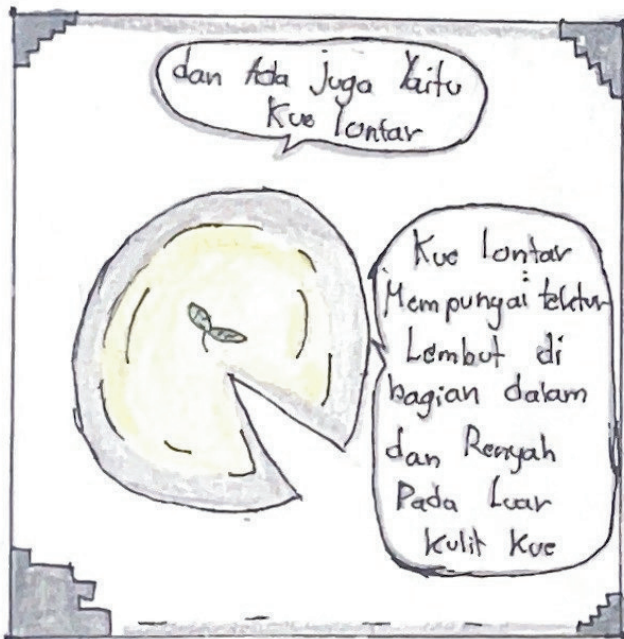 dan Ada juga Yaitu
Kue lontar
Kue lontar
Mempungai tekstur
Lembut di
bagian dalam
dan Renyah
Pada Luar
Kulit Kue